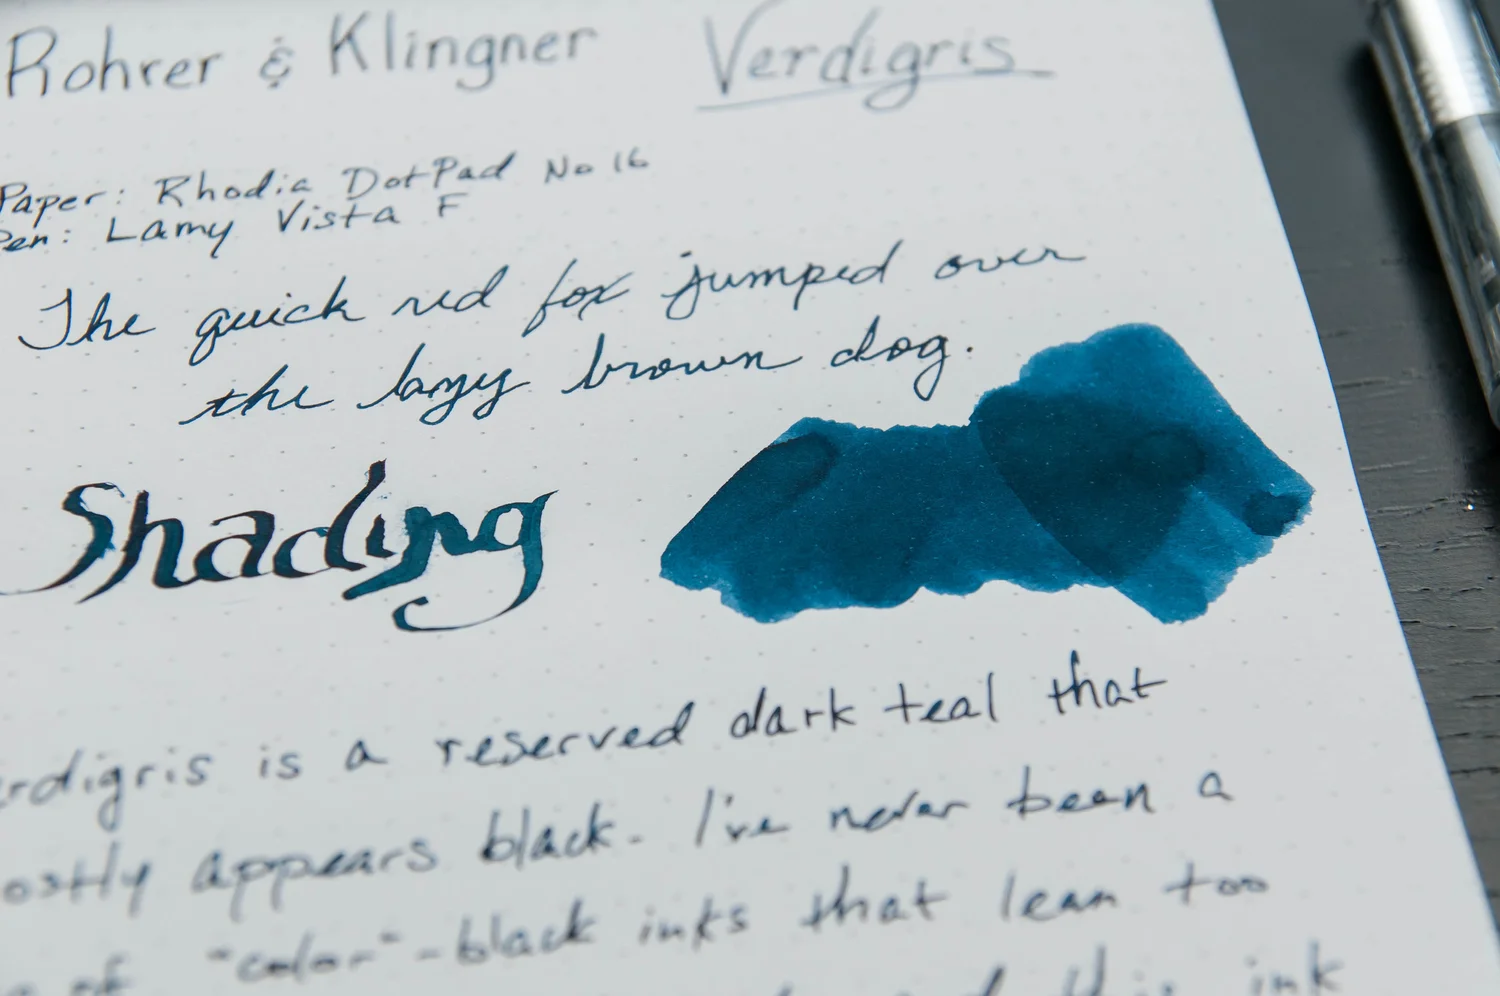 Rohrer & Klingner Verdigris
Paper: Rhodia DotPad No 16
Pen: Lamy Vista F
The quick red fox jumped over
the lazy brown dog.
Shading
erdigris is a reserved dark teal that
ostly appears black. I've never been a
of "color"-black inks that lean too
this ink